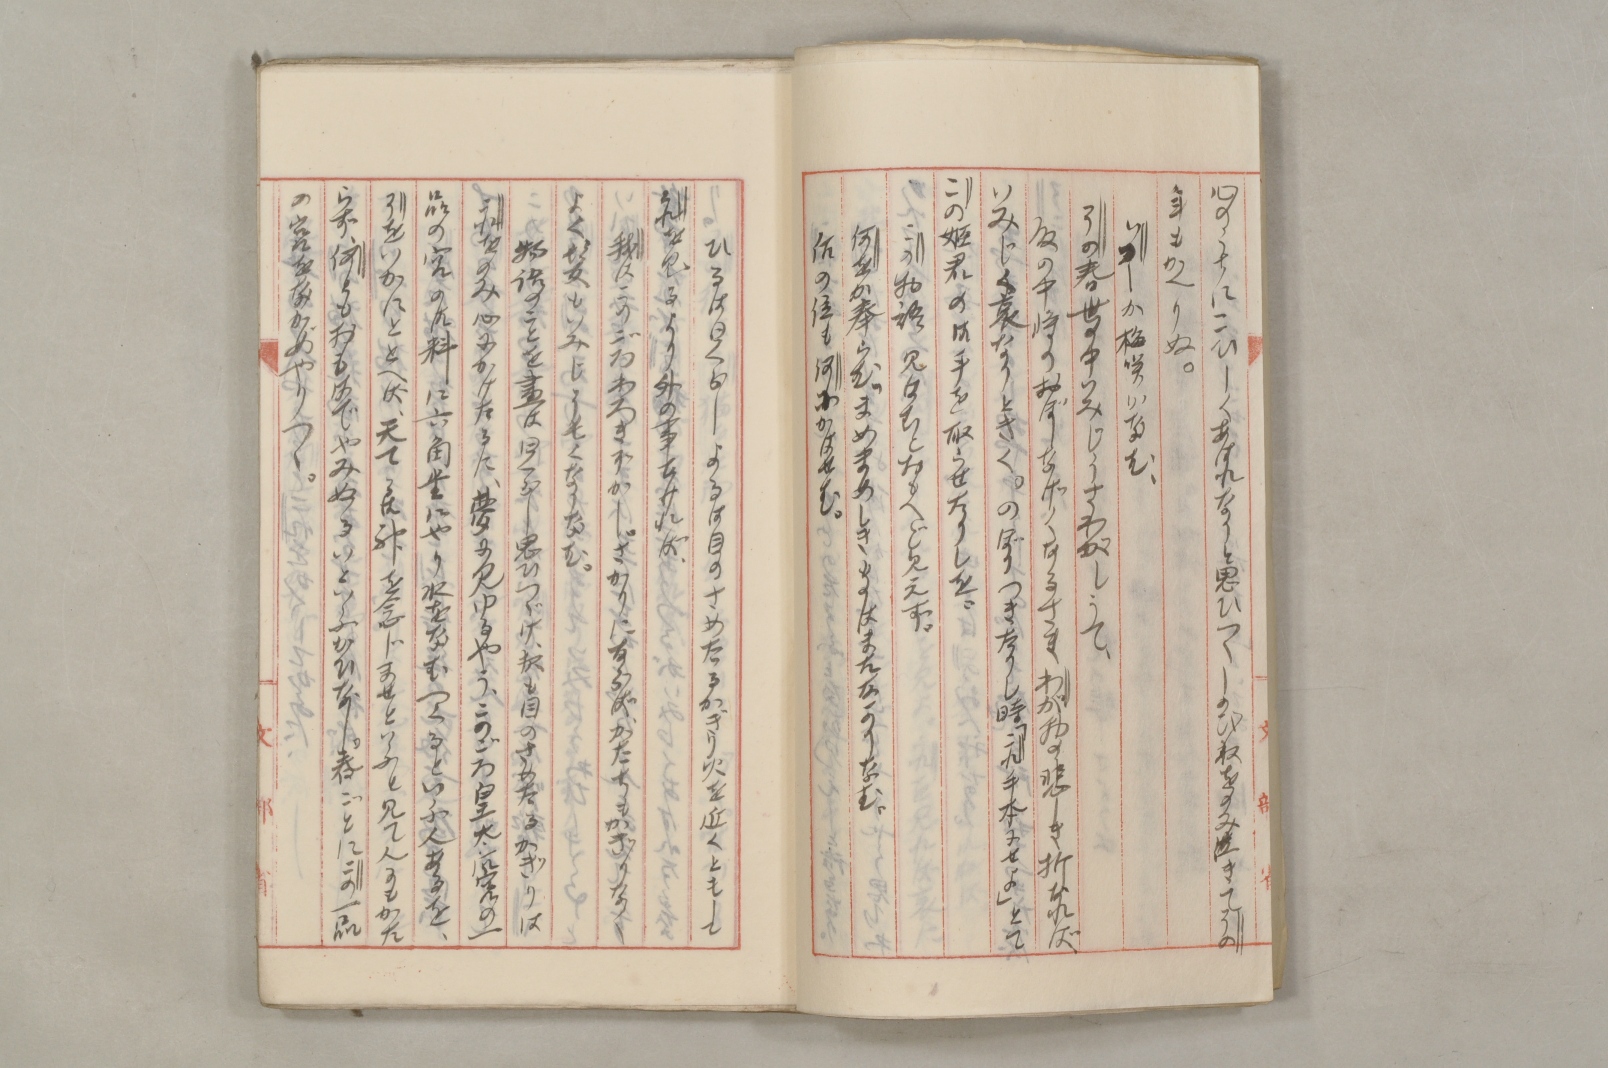 心のうちにこひしくあはれなりと思ひつゝしのびねをのみ泣きてその
年もかへりぬ。
いつしか梅咲かなむ、
その春世の中いみじうさわがしうて、
めのとも悲しき折なれば、
いみじく哀なりときく。のぼりつきたりし時「これ手本にせよ」とて
この姫君の御手を取らせたりしを、
この物語見はてむとおもへど見えず。
何をか奉らむ。まめまめしきものはまさなかりなむ。
后の位も何にかはせむ。
ひるは日ぐらしよるは目のさめたるかぎり火を近くともして
これを見るより外の事なければ、
我はこのごろわろきぞかし。さかりにならばかたちもかぎりなく
よく髪もいみじくながくなりなむ。
物語のことを昼は日ぐらし思ひつゞけ、夜も目のさめたるかぎりは
これをのみ心にかけたるに、夢に見ゆるやう、このごろ皇太后宮の一
品の宮の御料に六角堂にやり水をなむつくるといふ人あるを、
そをいかにととへば、天てる御神を念じませといふと見て人にもかた
らず、何ともおもはでやみぬるいといふかひなし。春ごとにこの一品
の宮をながめやりつゝ。
文部省
文部省